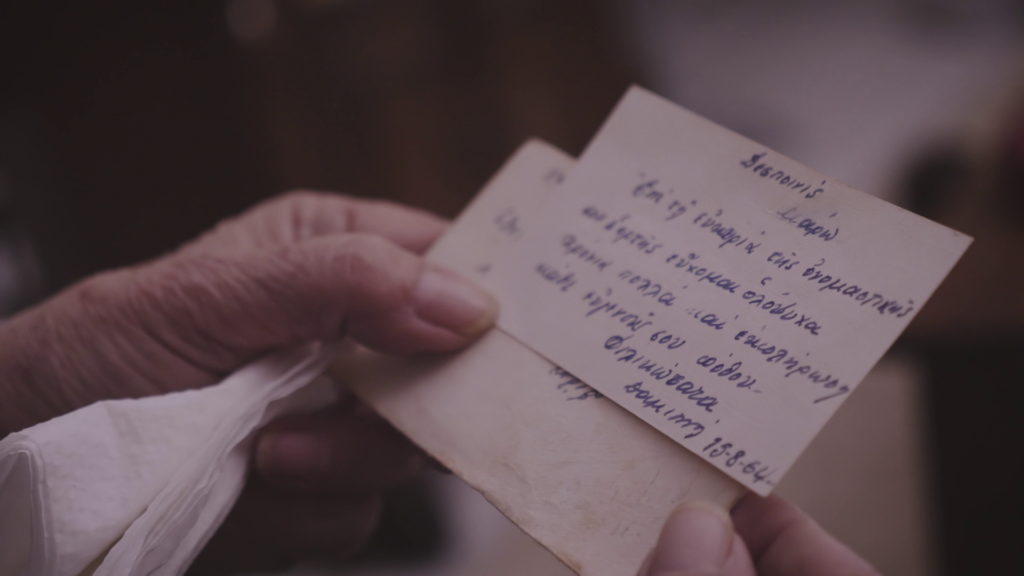 Δεσποινίς
Μαρώ
Ἐπί τῇ εὐκαιρίᾳ τῆς ὀνομαστικῆς
σου ἑορτῆς εὔχομαι ὁλόψυχα
χρόνια πολλά καί ἐκπλήρωση
κάθε εὐγενοῦς σου πόθου
Φιλικώτατα
15-8-64